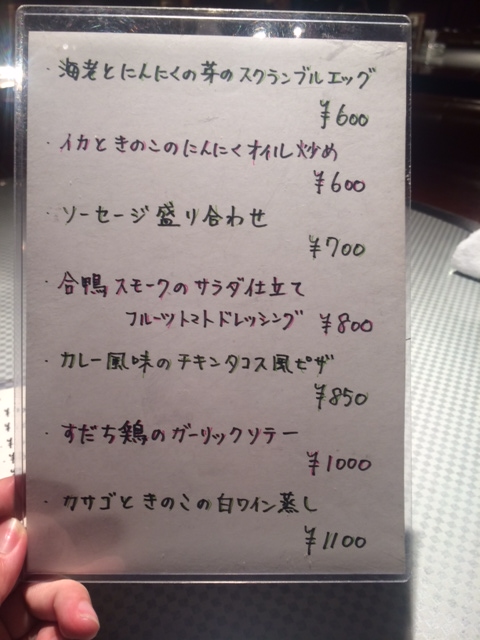 ・海老とにんにくの芽のスクランブルエッグ
¥600
・イカときのこのにんにくオイル炒め
¥600
・ソーセージ盛り合わせ
¥700
・合鴨スモークのサラダ仕立て
フルーツトマトドレッシング ¥800
・カレー風味のチキンタコス風ピザ
¥850
・すだち鶏のガーリックソテー
¥1000
・カサゴときのこの白ワイン蒸し
¥1100